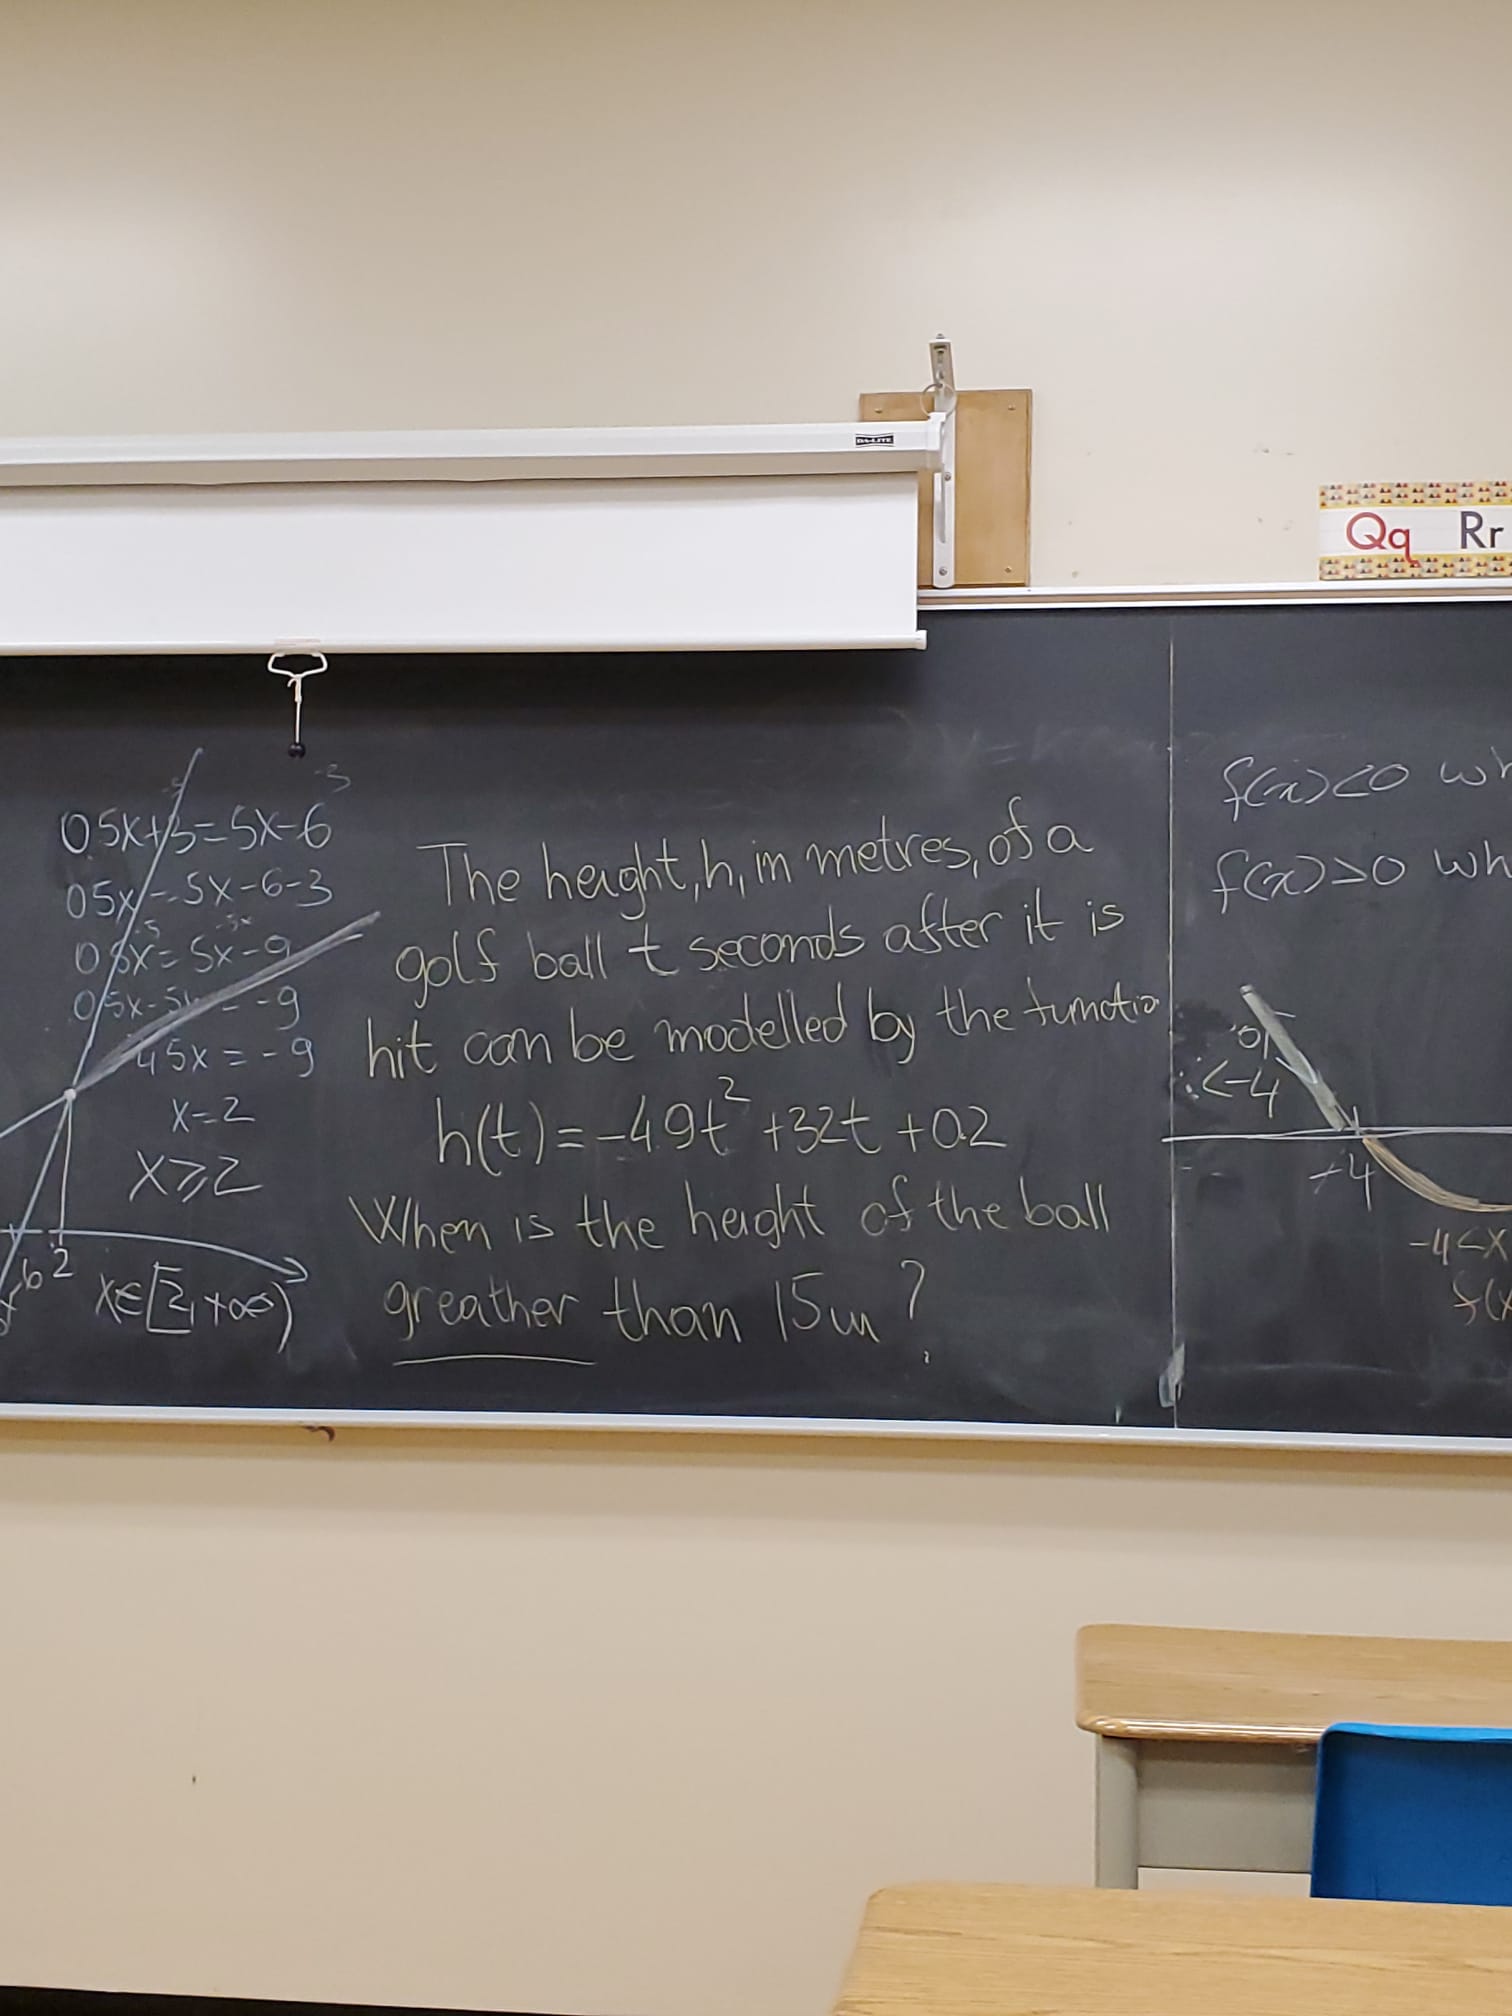 DA-LITE
Qq Rr
-3
05x+3=5x-6
05x=5x-6-3
05x=5x-9
05x-5x=-9
45x=-9
x=2
x⩾2
-6 2
x∈[2,+∞)
The height, h, in metres, of a
golf ball t seconds after it is
hit can be modelled by the functio
h(t)=-4.9t²+32t+0.2
When is the height of the ball
greather than 15m?
f(x)<0 wh
f(x)>0 wh
<-4
-4
-4<x
f(x